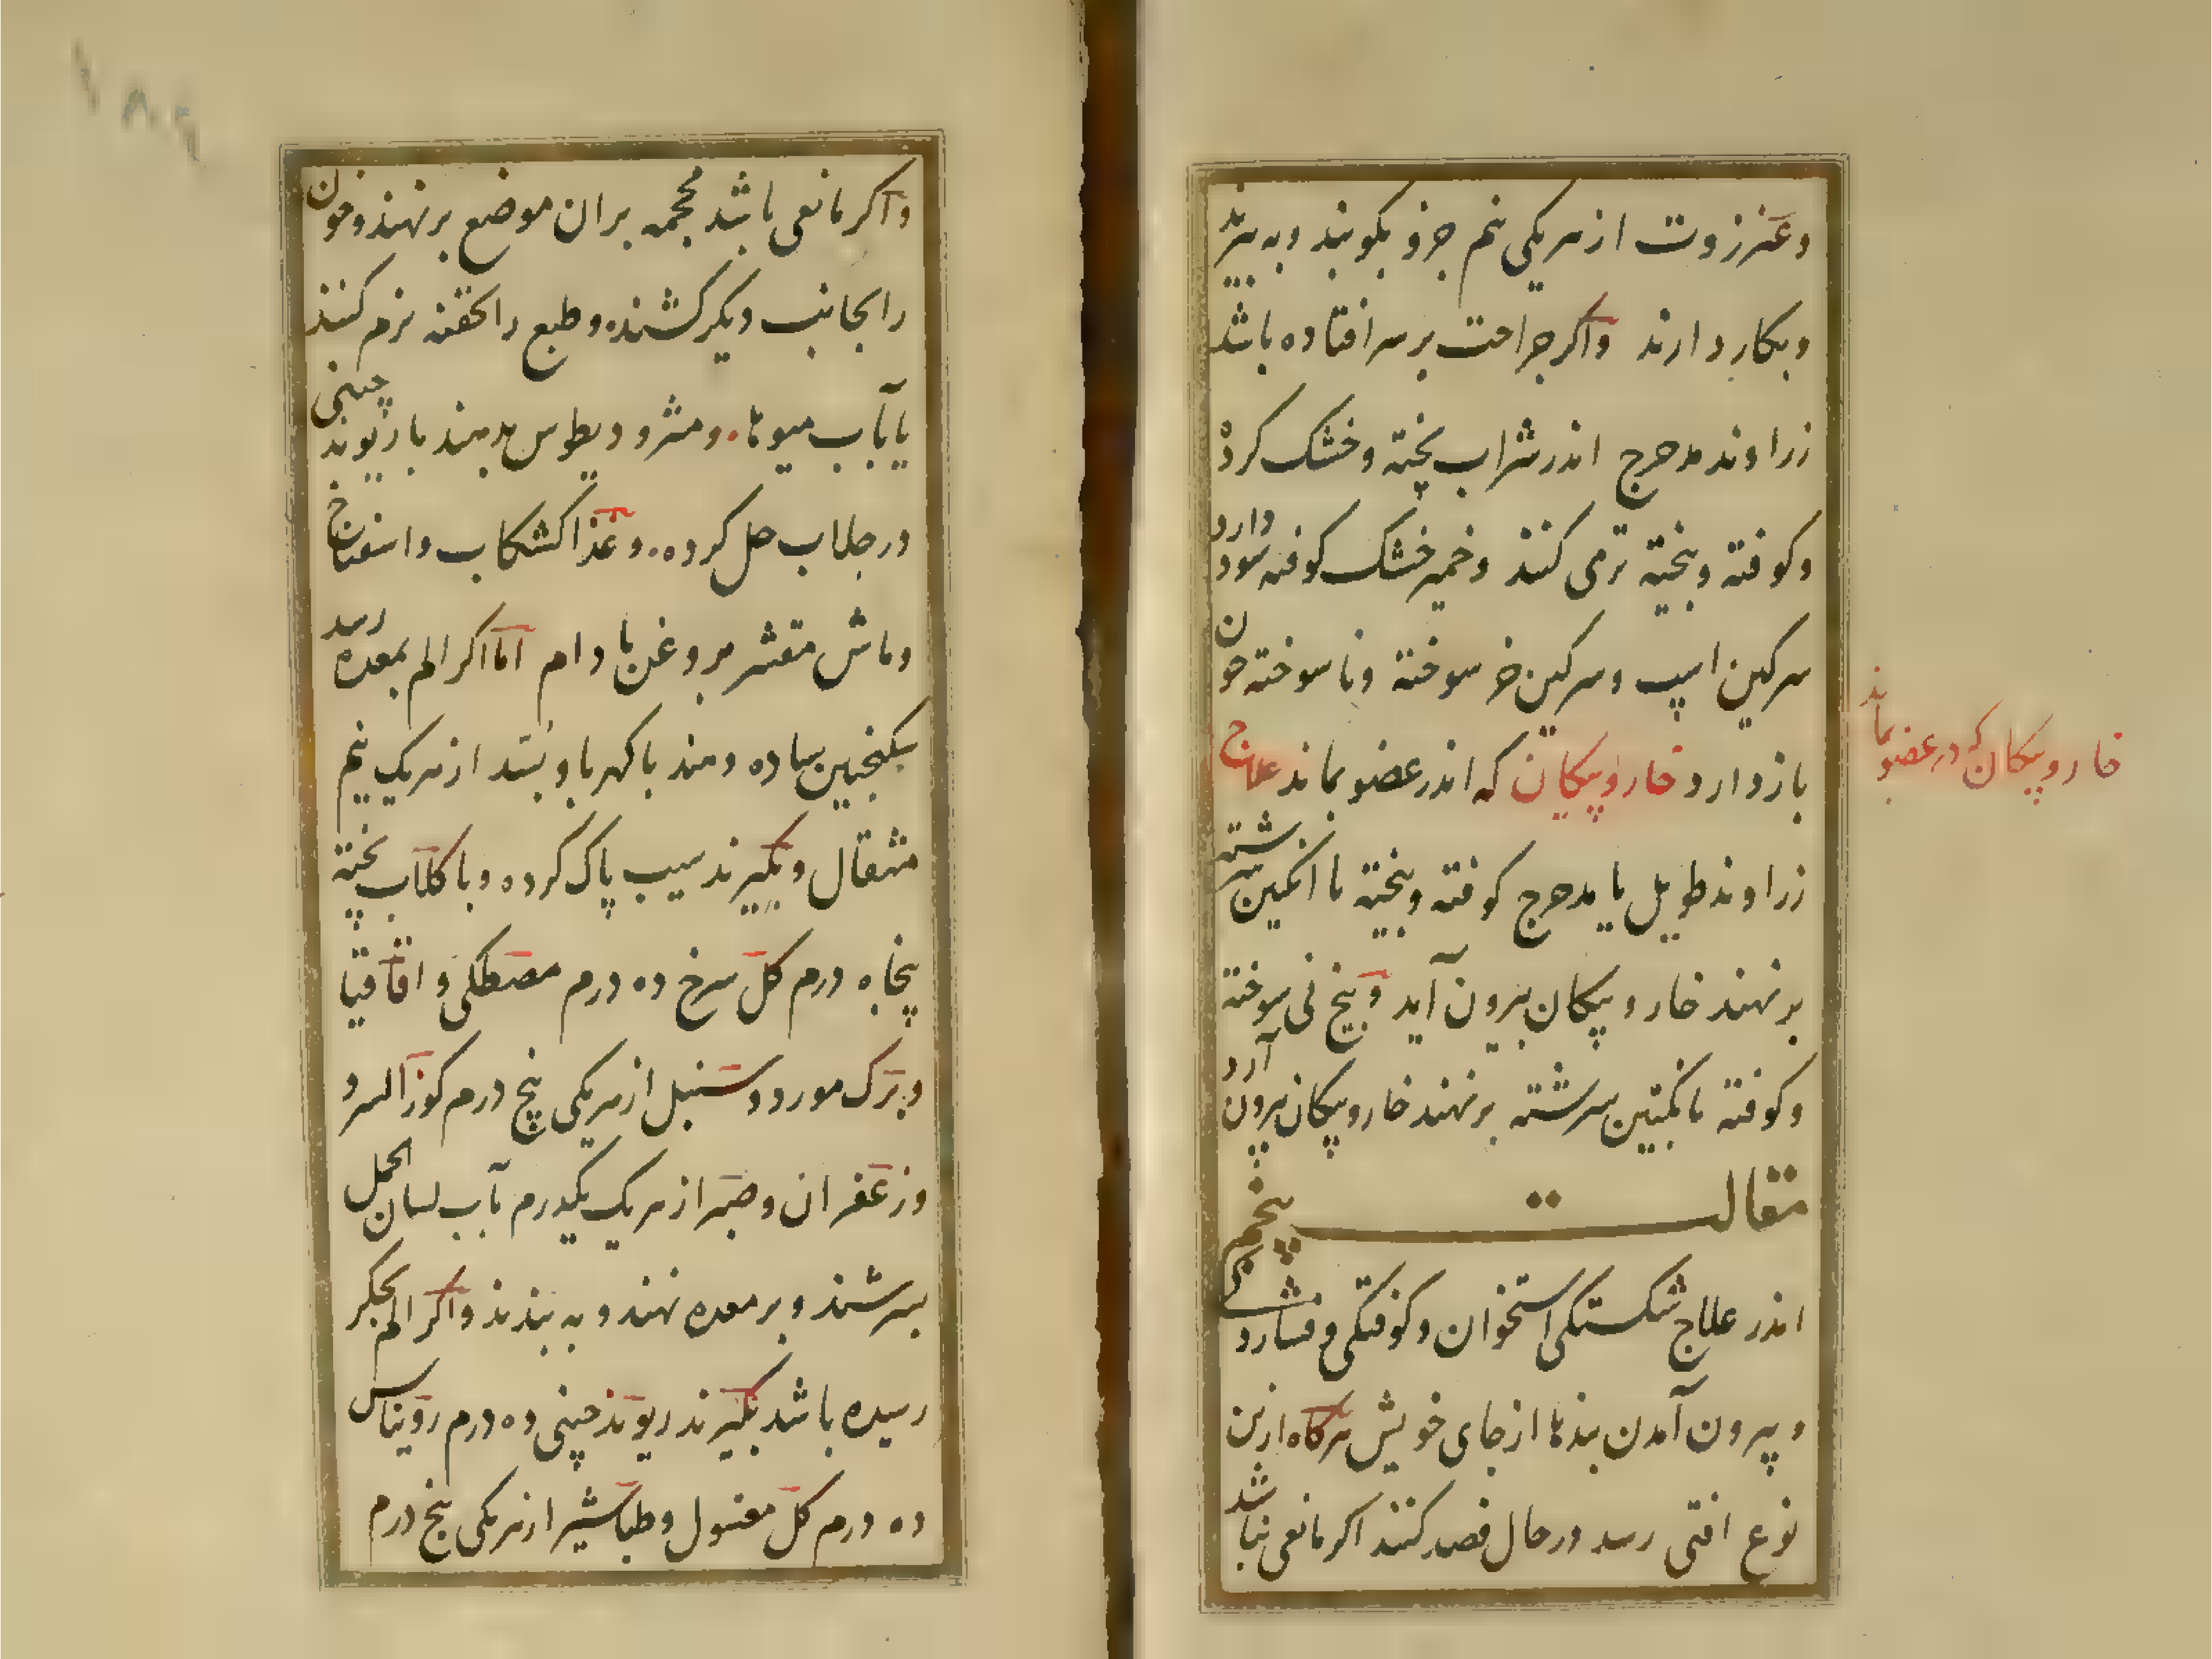 وعنزروت از هر یکی نیم جزو بکوبند و به بیزند
وبکار دارند واکر جراحت بر سر افتاده باشد
زراوند مدحرج اندر شراب پخته وخشک کرده
وکوفته وبیخته تر می کنند وخمیر خشک کوفته سود دارد
سرکین اسپ وسرکین خر سوخته ونا سوخته خون
باز دارد خار وپیکان که اندر عضو بماند علاج
خار وپیکان که در عضو بماند
زراوند طویل یا مدحرج کوفته وبیخته با انکبین سرشته
بر نهند خار وپیکان بیرون آید وبیخ نی سوخته
وکوفته بانکبین سرشته بر نهند خار وپیکان بیرون آرد
مقالت پنجم
اندر علاج شکستکی استخوان وکوفتکی وفشاردکی
وبیرون آمدن بندها از جای خویش هرکاه ازین
نوع افتی رسد در حال فصد کنند اکر مانعی نباشد
واکر مانعی باشد محجمه بران موضع بر نهند وخون
را بجانب دیکر کشند وطبع را بحقنه نرم کنند
یا بآب میوها ومثرودیطوس بدهند با ریوند چینی
در جلاب حل کرده وغذا کشکاب واسفناخ
وماش مقشر بروغن بادام اما اکر الم بمعده رسد
سکنجبین ساده دهند با کهربا وبسد از هریک نیم
مثقال وبکیرند سیب پاک کرده وبا کلاب پخته
پنجاه درم کل سرخ ده درم مصطکی واقاقیا
وبرک مورد وسنبل از هریکی پنج درم کوز السرو
وزعفران وصبر از هریک یکدرم بآب لسان الحمل
بسرشند وبر معده نهند وبه بندند واکر الم بجکر
رسیده باشد بکیرند ریوند چینی ده درم رویناس
ده درم کل مغسول وطباشیر از هریکی پنج درم